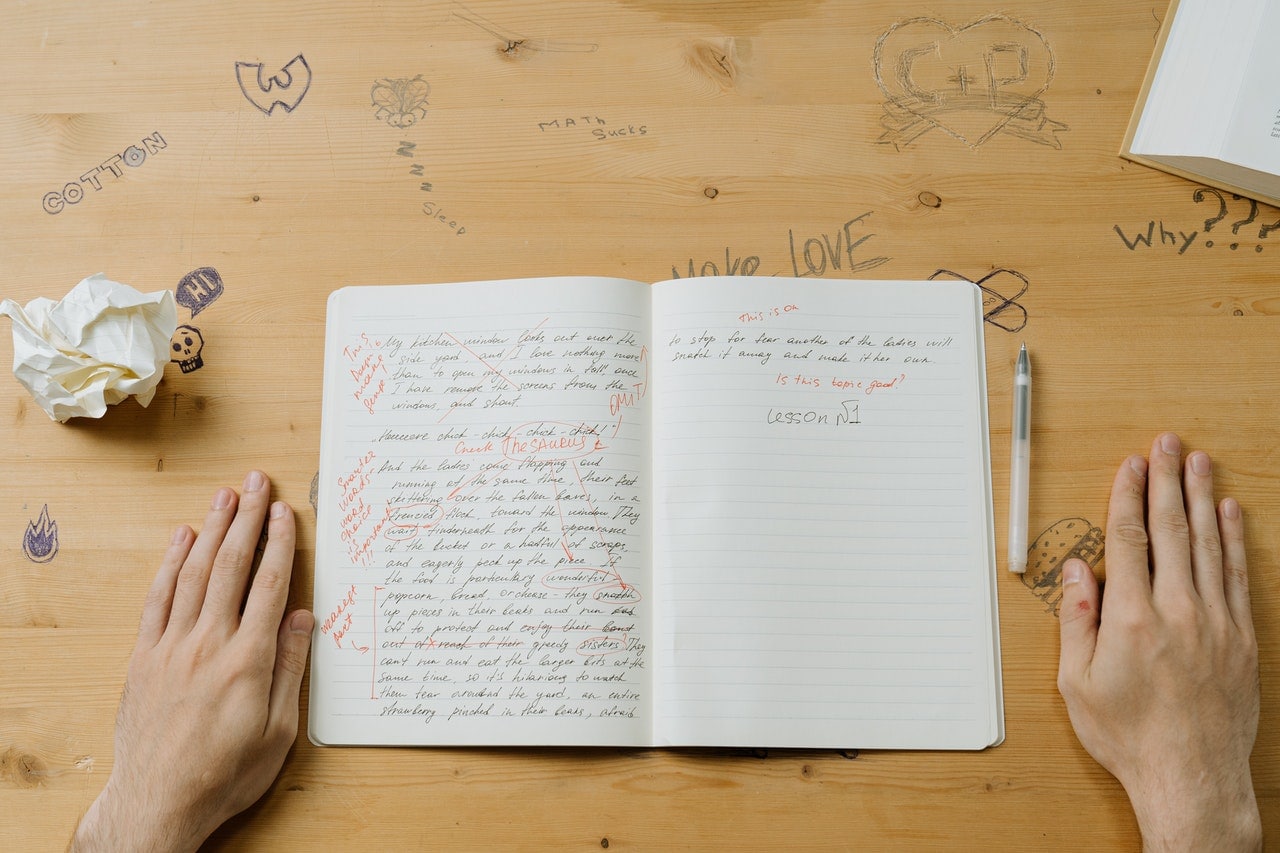 W
C+P
MATH
Sucks
COTTON
Z
Z
Z
Z
Sleep
Why???
MAKE LOVE
HI
This
has no
sense!
My kitchen window looks out over the
side yard and I love nothing more
than to open my windows in fall, once
I have remove the screens from the
windows, and shout.
OMIT
"Heeeeere chick-chick-chick-chick!"
Check THESAURUS
smarter
words-
word
choice
important
!!!
And the ladies come flapping and
running at the same time, their feet
skittering over the fallen leaves, in a
frenzied flock toward the window. They
wait underneath for the appearance
of the bucket or a handful of scraps,
and eagerly peck up the piece. If
the food is particulary wonderful -
popcorn, bread, or cheese - they snatch
weakest
part
up pieces in their beaks and run
off to protect and enjoy their
out of reach of their greedy sisters? They
can't run and eat the larger bits at the
same time, so it's hilarious to watch
them tear around the yard, an entire
strawberry pinched in their beaks, afraid
This is on
to stop for fear another of the ladies will
snatch it away and make it her own.
Is this topic good?
Lesson №1